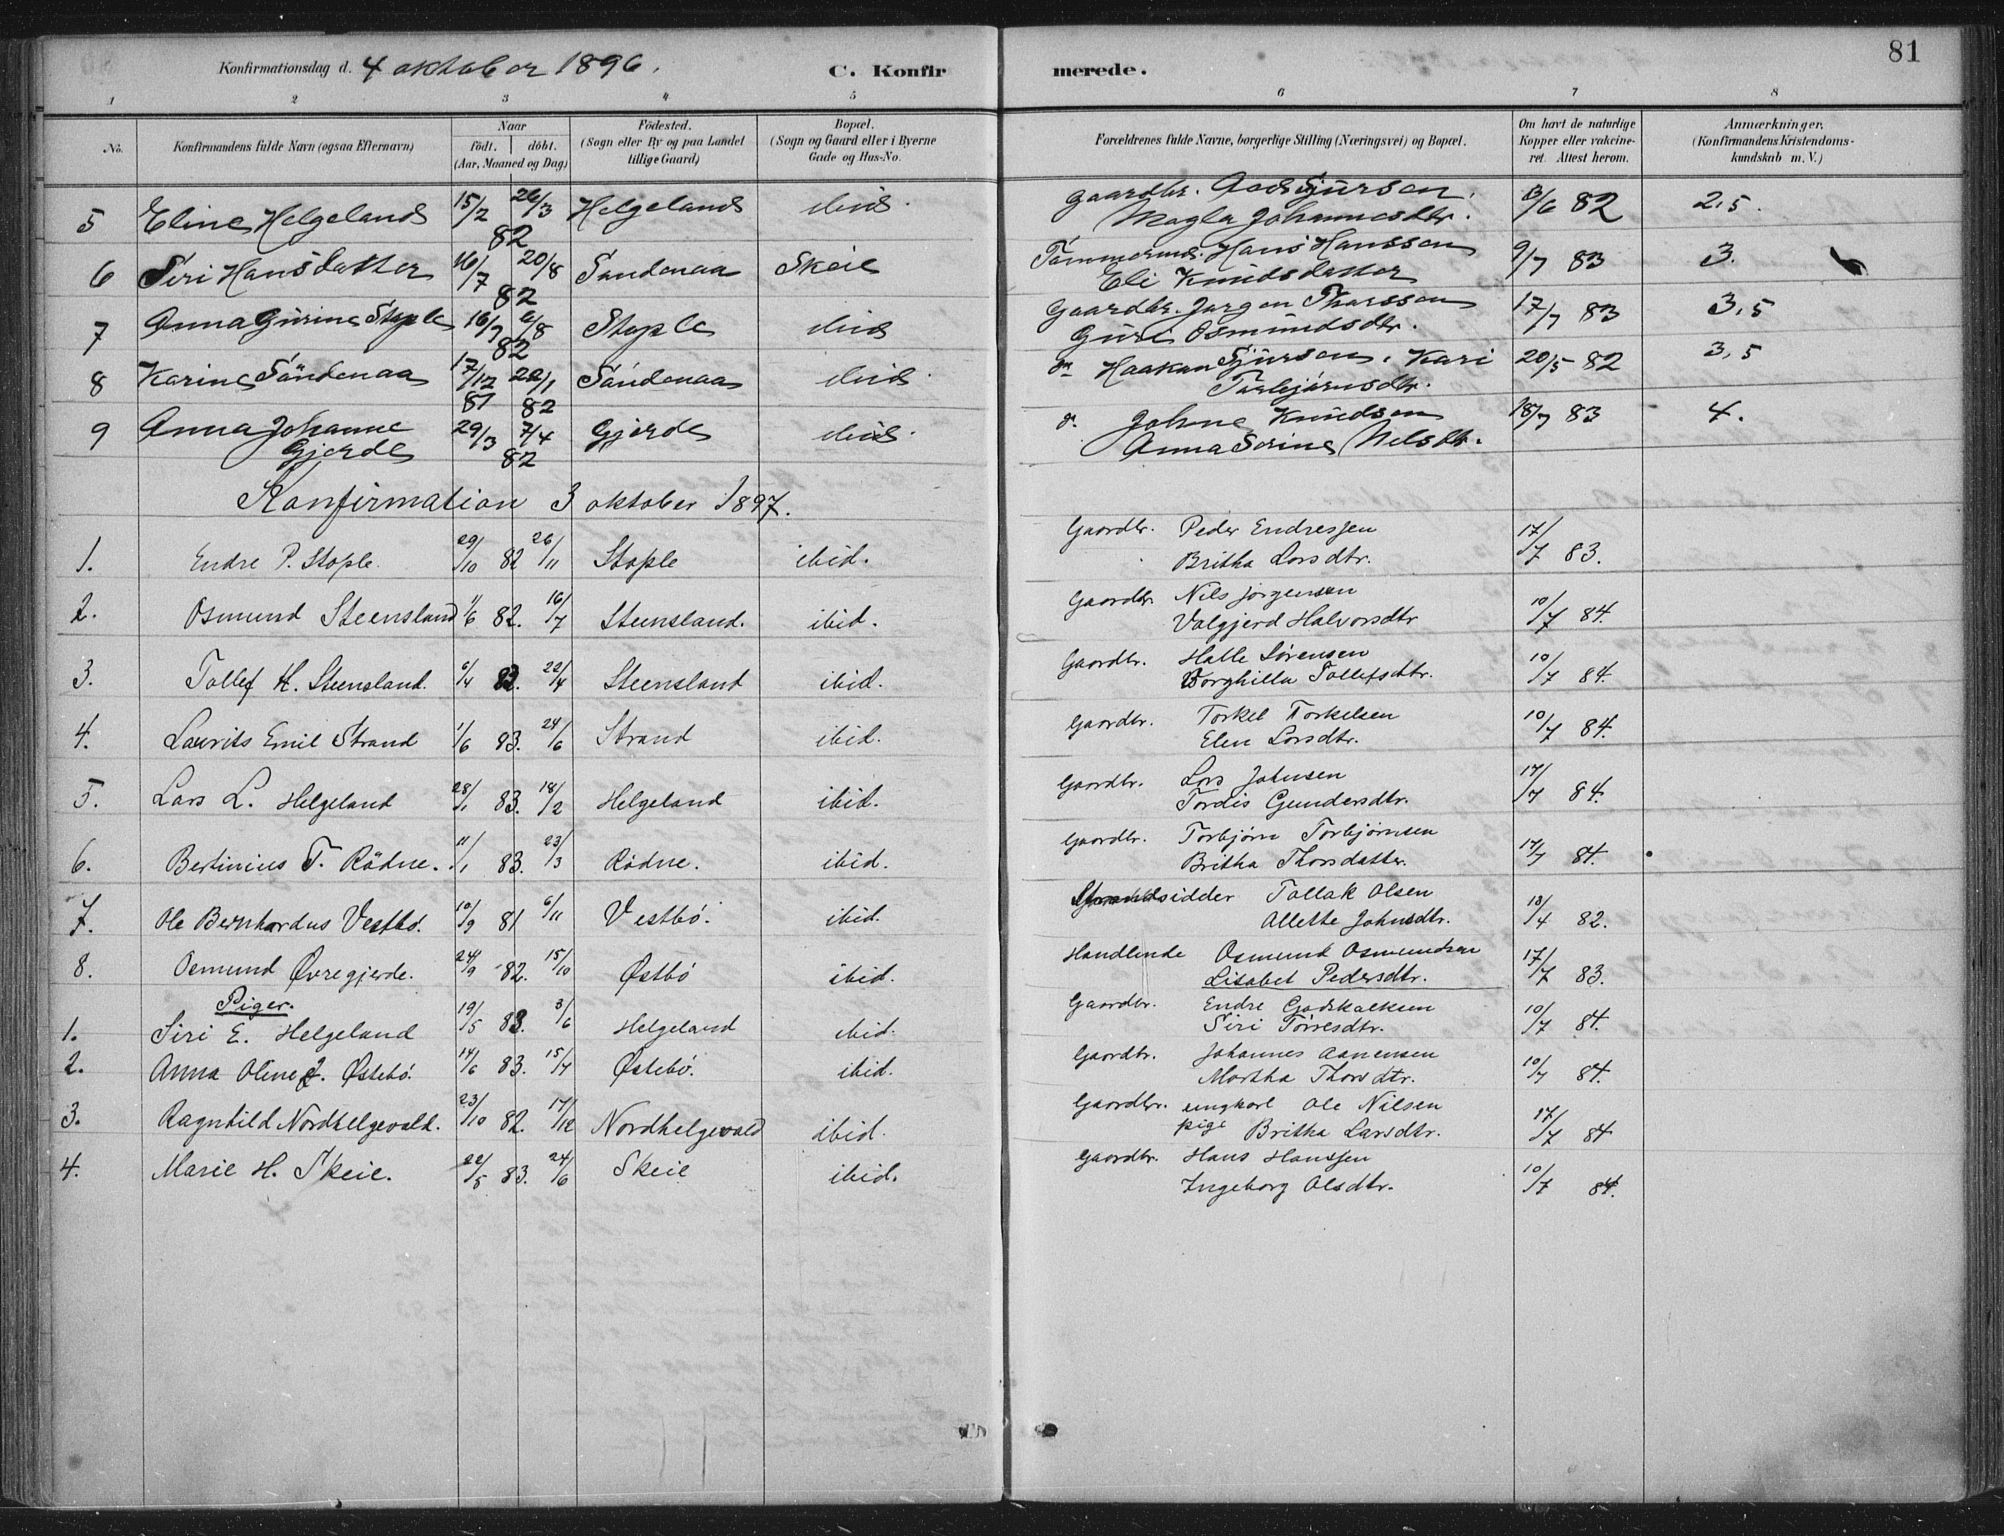 Konfirmationsdag d. 4 oktober 1896. C. Konfirmerede. 81
1 2 3 4 5 6 7 8
No. Konfirmandens fulde Navn (ogsaa Efternavn) Naar födt. döbt. (Aar, Maaned og Dag) Födested. (Sogn eller By og paa Landet tillige Gaard) Bopæl. (Sogn og Gaard eller i Byerne Gade og Hus-No. Forældrenes fulde Navne, borgerlige Stilling (Næringsvei) og Bopæl. Om havt de naturlige Kopper eller vakcineret. Attest herom. Anmærkninger. (Konfirmandens Kristendomskundskab m. V.)
5 Eline Helgeland 15/2 26/3 82 Helgeland ibid. Gaardbr. Sjursen Magla Johannesdtr. 13/6 82 2,5.
6 Siri Hansdatter 16/7 20/8 82 Søndenaa Skeie Tømmermd. Hans Hanssen Eli Knudsdatter 9/7 83 3.
7 Anna Gurine Stople 16/7 6/8 82 Stople ibid Gaardbr. Jørgen Thorssen Guri Osmundsdtr. 17/7 83 3,5
8 Karine Söndenaa 17/12 81 22/1 82 Söndenaa ibid. do Haakon Sjursen, Kari Torbjørnsdtr. 20/5 82 3,5
9 Anna Johanne Gjerde 29/3 7/4 82 Gjerde ibid. do. Johne Knudsen Anna Serine Nelsdtr. 18/7 83 4.
Konfirmation 3 oktober 1897.
1. Endre P. Stople. 29/10 82 26/11 Stople ibid. Gaardbr. Peder Endressen Britha Larsdtr. 17/7 83.
2. Osmund Steensland 11/6 82. 16/7 Steensland. ibid. Gaardbr. Nils Jørgensen Valgjerd Halvorsdtr 10/7 84.
3. Tollef H. Steensland. 6/4 83. 22/4 Steensland ibid. Gaardbr. Halle Sørensen Borghilla Tollefsdtr. 10/7 84.
4. Laurits Emil Strand 1/6 83. 24/6 Strand ibid. Gaardbr. Torkel Torkelsen Elen Larsdtr. 10/7 84.
5. Lars L. Helgeland 28/1 83. 18/2 Helgeland ibid. Gaardbr. Lars Johnsen Tordis Gundersdtr. 17/7 84.
6. Bertinius T. Rödne. 11/1 83. 23/3 Rödne. ibid. Gaardbr. Torbjørn Torbjørnsen Britha Thorsdatter. 17/7 84.
7. Ole Bernhardus Vestbö. 10/9 81 6/11 Vestbö. ibid. Strandsidder Tollak Olsen Allette Johnsdtr. 13/4 82.
8. Osmund Øvregjerde. 24/9 82. 15/10 Østbö ibid. Handlende Osmund Osmundsen Lisabet Pedersdtr. 17/7 83.
Piger.
1. Siri E. Helgeland 19/5 83. 3/6 Helgeland ibid. Gaardbr. Endre Godskalksen Siri Torresdtr. 10/7 84.
2. Anna Oline J. Østebö. 14/6 83. 15/7 Østebö. ibid. Gaardbr. Johannes Aanensen Martha Thorsdtr. 10/7 84.
3. Ragnhild Nordhelgevold. 23/10 82. 17/12 Nordhelgevold ibid. Gaardbr. ungkarl Ole Nilsen pige Britha Larsdtr. 17/7 84
4. Marie H. Skeie. 22/5 83. 24/6 Skeie ibid. Gaardbr. Hans Hanssen Ingeborg Olsdtr. 10/7 84.